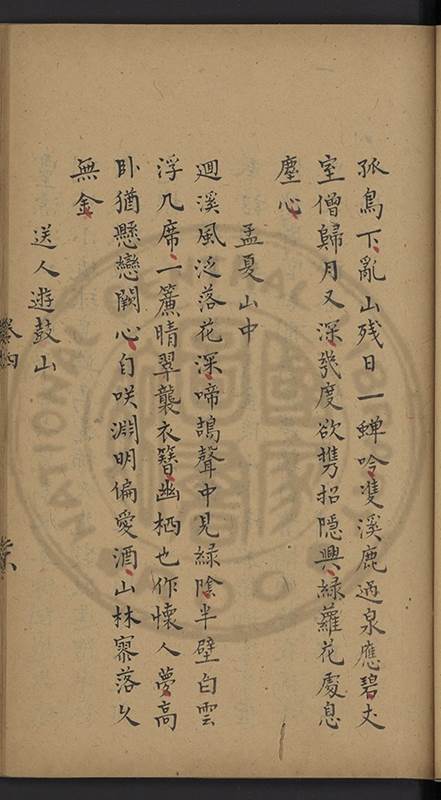 孤鳥下亂山残日一蟬吟隻溪鹿過泉應碧丈
室僧歸月又深幾度欲携招隐興緑蘿花處息
塵心
孟夏山中
廻溪風泛落花深啼鵠聲中見緑陰半壁白雲
浮几席一簾晴翠襲衣簪幽栖也作懷人夢高
卧猶懸戀闕心自咲淵明偏愛酒山林寥落久
無金
送人遊鼓山
卷四